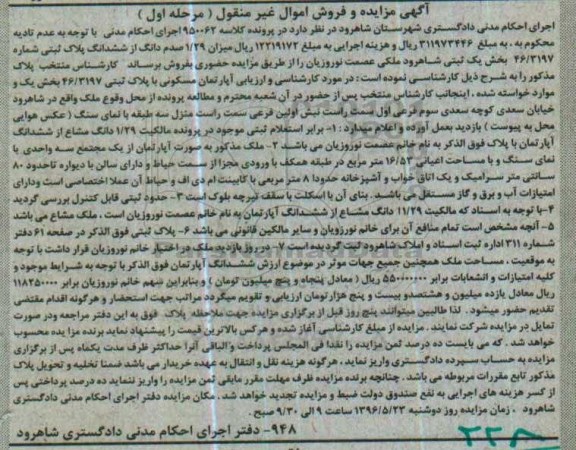 آگهی مزایده و فروش اموال غیر منقول ( مرحله اول )
اجرای احکام مدنی دادگستری شهرستان شاهرود در نظر دارد در پرونده کلاسه ۹۵۰۰۶۲ اجرای احکام مدنی با توجه به عدم تادیه
محکوم به . به مبلغ ۳۱۱۹۷۳۴۴۶ ریال و هزینه اجرایی به مبلغ ۱۲۲۱۹۱۷۲ ریال میزان ۱/۲۹ صدم دانگ از ششدانگ پلاک ثبتی شماره
۴۶/۳۱۹۷ بخش یک ثبتی شاهرود ملکی عصمت نوروزیان را از طریق مزایده حضوری بفروش برساند کارشناس منتخب پلاک
مذکور را به شرح ذیل کارشناسی نموده است : در مورد کارشناسی و ارزیابی آپارتمان مسکونی با پلاک ثبتی ۴۶/۳۱۹۷ بخش یک و
موارد خواسته شده ، اینجانب کارشناس منتخب پس از حضور در آن شعبه محترم و مطالعه پرونده از محل وقوع ملک واقع در شاهرود
خیابان سعدی کوچه سعدی سوم فرعی اول سمت راست نبش اولین فرعی سمت راست منزل سه طبقه با نمای سنگ ( عکس هوایی
محل به پیوست ) بازدید بعمل آورده و اعلام میدارد : ۱- برابر استعلام ثبتی موجود در پرونده مالکیت ۱/۲۹ دانگ مشاع از ششدانگ
آپارتمان با پلاک فوق الذکر به نام خانم عصمت نوروزیان می باشد ۲- ملک مذکور به صورت آپارتمان از یک مجتمع سه واحدی با
نمای سنگ و با مساحت اعیانی ۱۶/۵۳ متر مربع در طبقه همکف با ورودی مجزا از سمت حیاط و دارای سالن با دیواره تاحدود ۸۰
سانتی متر سرامیک و یک اتاق خواب و آشپزخانه حدودا ۸ متر مربعی با کابینت ام دی اف و حیاط آن عملا اختصاصی است ودارای
امتیازات آب و برق و گاز مستقل می باشد . بنای آن با اسکلت با سقف تیرچه بلوک است ۳- حدود ثبتی قابل کنترل بررسی گردید
۴- با توجه به اسناد که مالکیت ۱۱/۲۹ دانگ مشاع از ششدانگ آپارتمان به نام خانم عصمت نوروزیان است . ملک مشاع می باشد
۵- آنچه مشخص است تمام منافع آن برای خانم نوروزیان و سایر مالکین قانونی می باشد ۶- پلاک ثبتی فوق الذکر در صفحه ۶۱ دفتر
شماره ۳۱۱ اداره ثبت اسناد و املاک شاهرود ثبت گردیده است ۷- در روز بازدید ملک در اختیار خانم نوروزیان قرار داشت با توجه
به موقعیت ، مساحت ملک همچنین جمیع جهات موثر در موضوع ارزش ششدانگ آپارتمان فوق الذکر با توجه به شرایط موجود و
کلیه امتیازات و انشعابات برابر ۵۵۰۰۰۰۰۰۰ ریال ( معادل پنجاه و پنج میلیون تومان ) و بنابراین سهم خانم نوروزیان برابر ۱۱۸۲۵۰۰۰۰
ریال معادل یازده میلیون و هشتصدو بیست و پنج هزار تومان ارزیابی و تقویم میگردد مراتب جهت استحضار و هرگونه اقدام مقتضی
تقدیم حضور میشود . لذا طالبین میتوانند پنج روز قبل از برگزاری مزایده جهت ملاحظه پلاک فوق به این دفتر مراجعه ودر صورت
تمایل در مزایده شرکت نمایند . مزایده از مبلغ کارشناسی آغاز شده و هرکس بالاترین قیمت را پیشنهاد نماید برنده مزایده محسوب
خواهد شد . که می بایست ده درصد ثمن مزایده را نقدا فی المجلس پرداخت و الباقی آنرا حداکثر ظرف مدت یکماه پس از برگزاری
مزایده به حساب سپرده دادگستری واریز نماید . هرگونه هزینه نقل و انتقال به عهده خریدار می باشد ضمنا تخلیه و تحویل پلاک
مذکور تابع مقررات مربوطه می باشد . چنانچه برنده مزایده ظرف مهلت مقرر مابقی ثمن مزایده را واریز ننماید ده درصد پرداختی پس
از کسر هزینه های اجرایی به نفع صندوق دولت ضبط و مزایده تجدید خواهد شد . مکان مزایده دفتر اجرای احکام مدنی دادگستری
شاهرود ، زمان مزایده روز دوشنبه ۱۳۹۶/۵/۲۳ ساعت ۹ الی ۹/۳۰ صبح .
۹۴۸- دفتر اجرای احکام مدنی دادگستری شاهرود